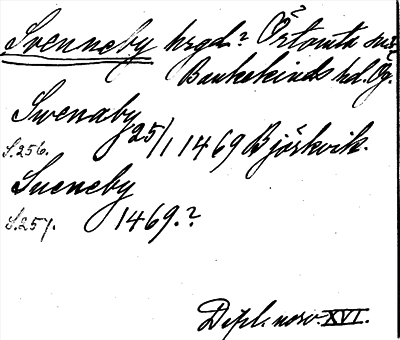 Svenneby hrgd? Örtomta sn?
Bankekinds hd. Ög.
Swenaby
S.256. 25/1 1469 Björkvik.
Sueneby
S.257. 1469.?
Dipl. norv. XVI.